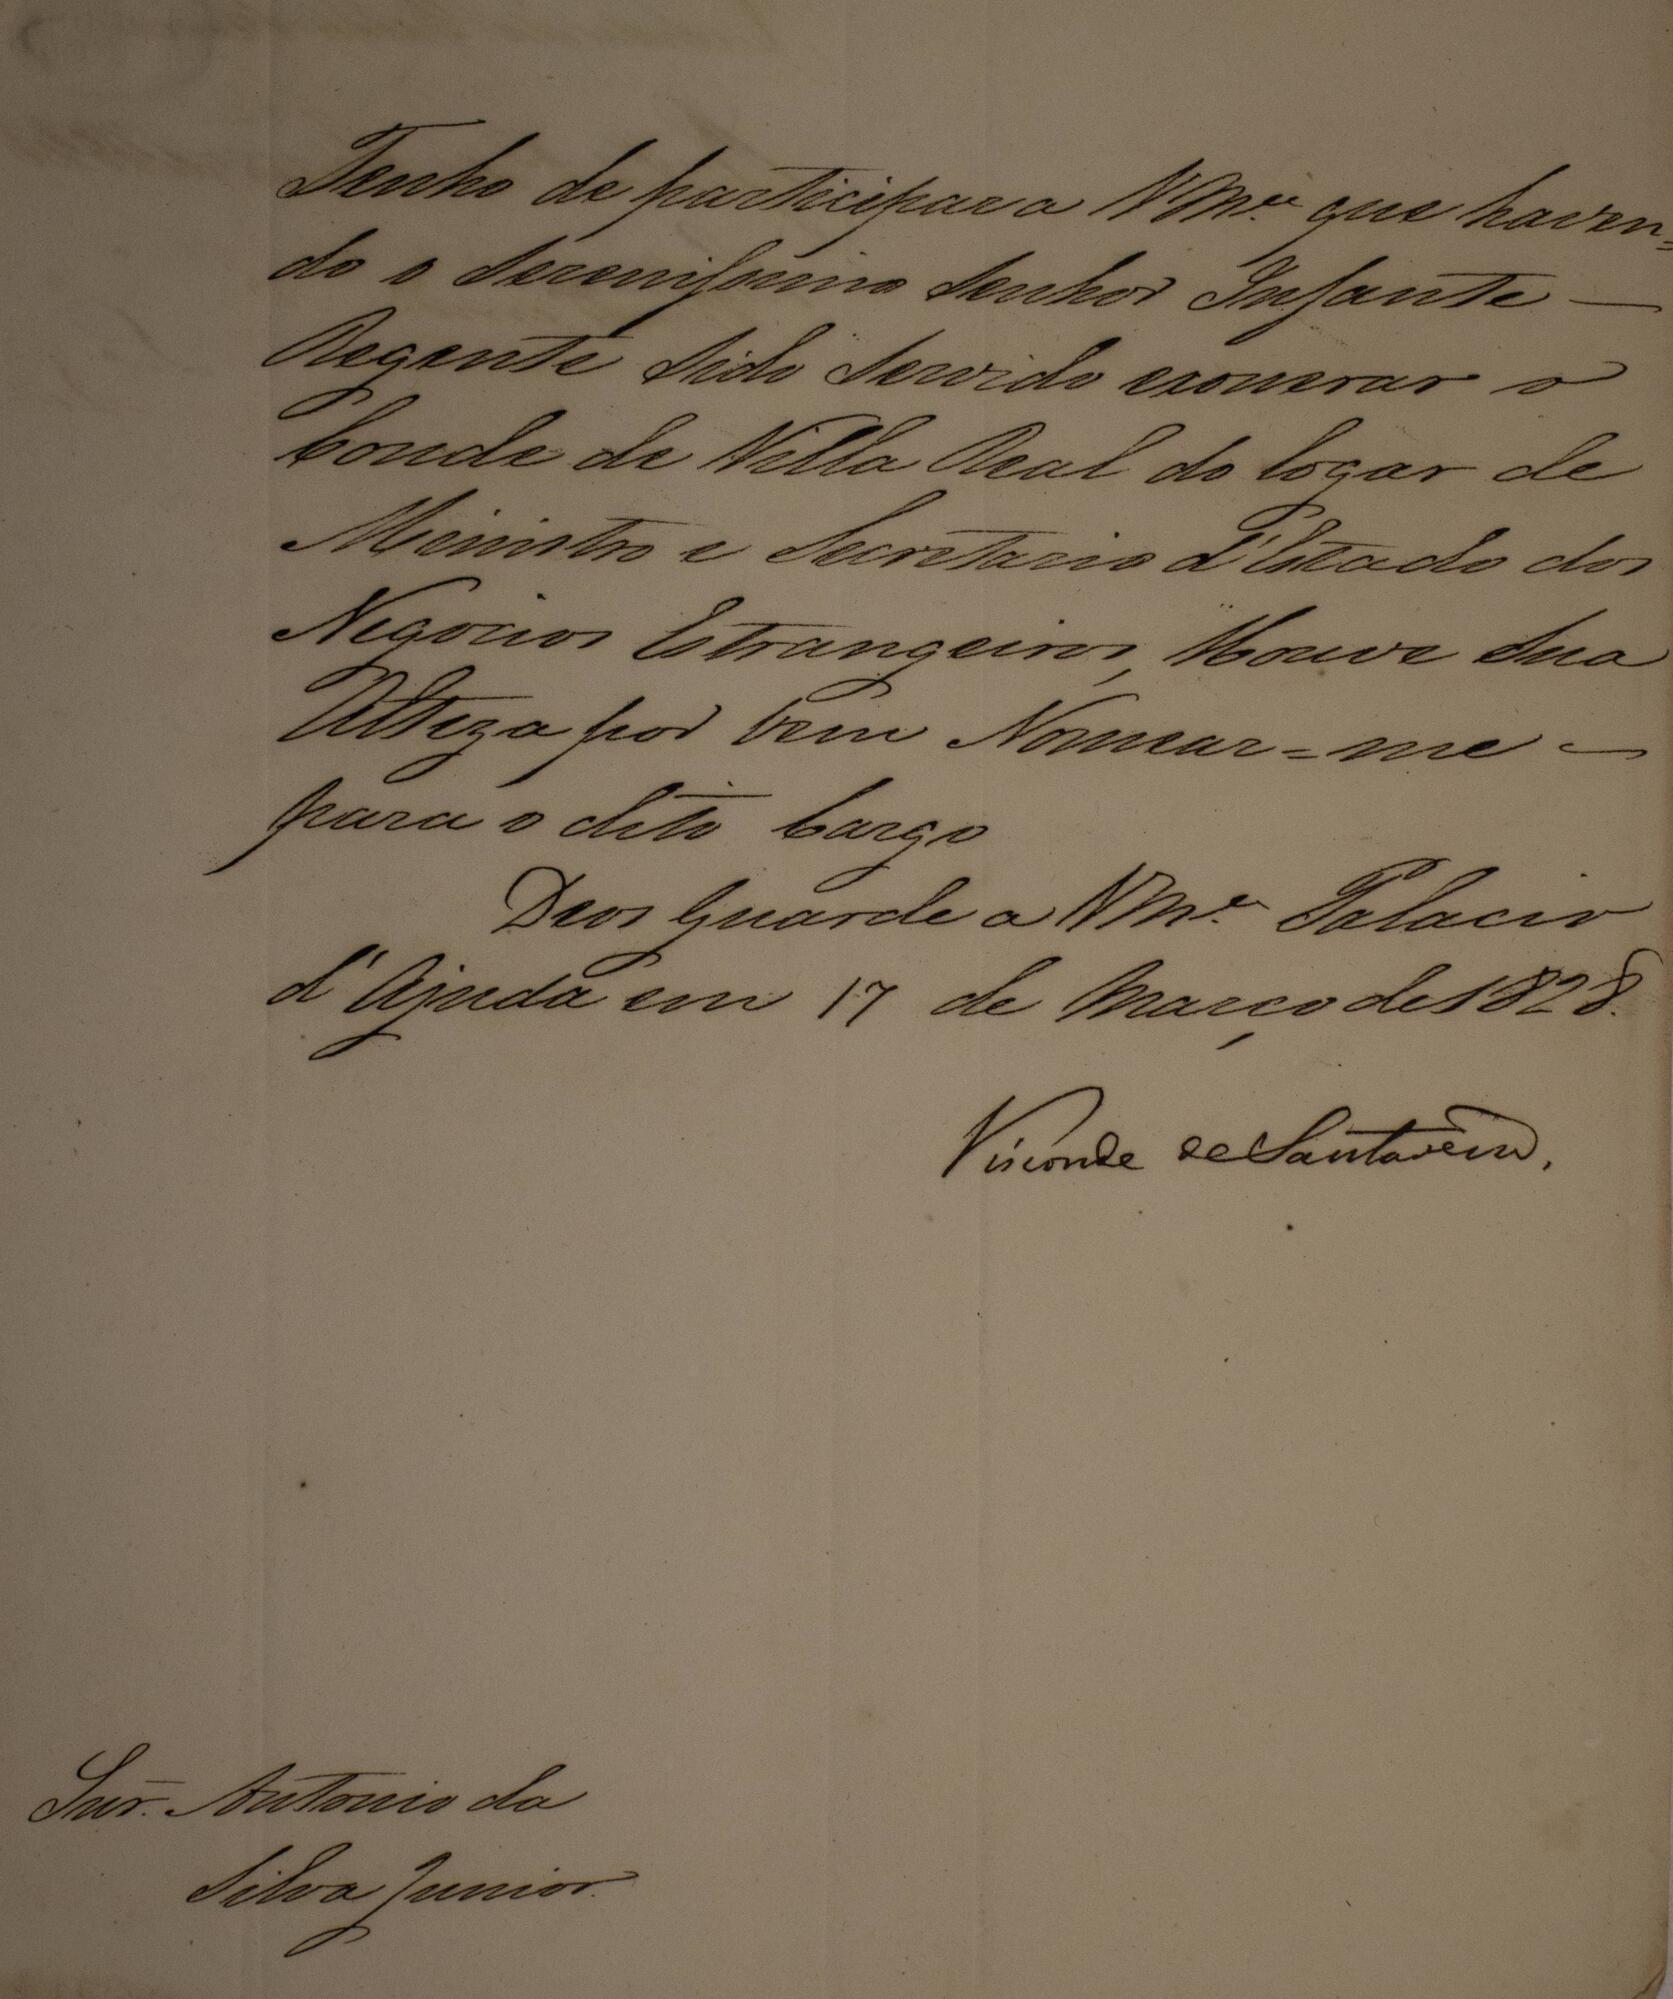 Tenho de participar a V Mce que haven=
do o Serenissimo Senhor Infante —
Regente Sido Servido exonerar o
Conde de Villa Real do logar de
Ministro e Secretario d'Estado dos
Negocios Estrangeiros, Houve Sua
Alteza por bem Nomear=me —
para o dito Cargo
Deos Guarde a V Mce Palacio
d'Ajuda em 17 de Março de 1828.
Visconde de Santarem,
Snr. Antonio da
Silva Junior.